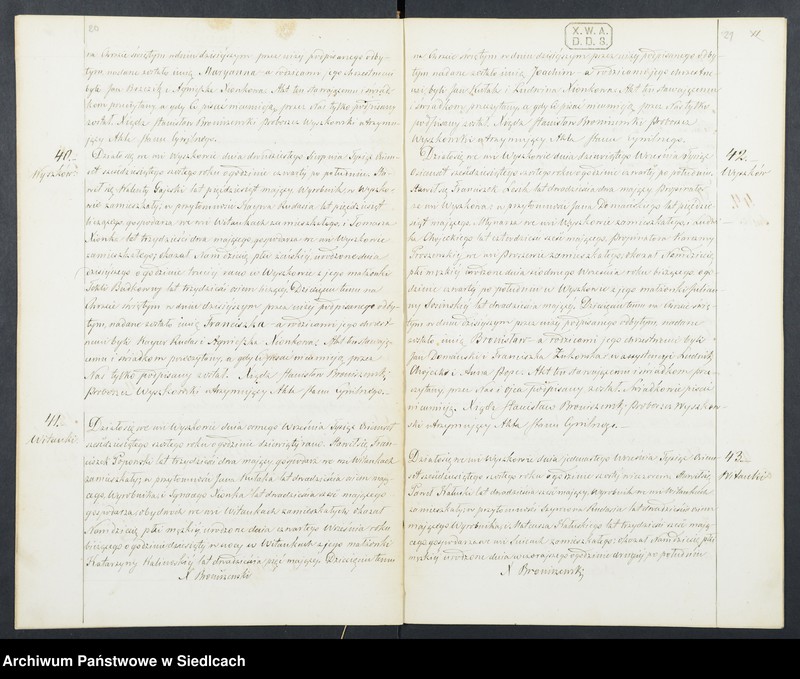 20
na Chrzcie świętym w dniu dzisiejszym przez niży podpisanego odby-
tym nadane zostało imię Maryanna a rodzicami jego chrzestnemi
byli Jan i Agnieszka Nionkona. Akt ten stawającemu i świad-
kom przeczytany, a gdy Ci pisać nieumieją, przez Nas tylko podpisany
został. Xiądz Stanisław Broniszewski Proboszcz Wyszkowski utrzymu-
jący Akta Stanu Cywilnego.
40.
Wyszków
Działo się we wsi Wyszkowie dnia dwudziestego Sierpnia Tysiąc Ośm-
set sześćdziesiątego szóstego roku o godzinie czwarty po południu. Sta-
wił się Walenty Gajeski lat pięćdziesiąt mający Wyrobnik w Wyszko-
wie zamieszkały, w przytomności Kacpra Kudasia lat pięćdziesiąt
liczącego gospodarza we wsi Witankach zamieszkałego i Tomasza
Nionka lat trzydzieści dwa mającego gospodarza we wsi Wyszkowie
zamieszkałego, okazał Nam dziecię płci żeńskiej, urodzone dnia
dzisiejszego o godzinie trzeciej rano w Wyszkowie z jego małżonki
lat trzydzieści ośm liczącej. Dziecięciu temu na
Chrzcie świętym w dniu dzisiejszym przez niży podpisanego odby-
tym, nadane zostało imię Franciszka a rodzicami jego chrzest-
nemi byli Kacper Kudaś i Agnieszka Nionkona. Akt ten stawają-
cemu i świadkom przeczytany, a gdy Ci pisać nieumieją, przez
Nas tylko podpisany został. Xiądz Stanisław Broniszewski
Proboszcz Wyszkowski utrzymujący Akta Stanu Cywilnego.
41.
Witanki
Działo się we wsi Wyszkowie dnia ósmego Września Tysiąc Ośmset
sześćdziesiątego szóstego roku o godzinie dziewiąty rano. Stawił się Fran-
ciszek lat trzydzieści dwa mający gospodarz we wsi Witankach
zamieszkały, w przytomności Jana lat dwadzieścia ośm mają-
cego Wyrobnika i Ignacego Siwka lat dwadzieścia sześć mającego
gospodarza obydwóch we wsi Witankach zamieszkałych, okazał
Nam dziecię płci męskiej urodzone dnia czwartego Września roku
bieżącego o godzinie dziewiąty w nocy w Witankach z jego małżonki
Katarzyny lat dwadzieścia pięć mającej. Dziecięciu temu
X Broniszewski
X.W.A.
D.D.S.
29
na Chrzcie świętym w dniu dzisiejszym przez niży podpisanego odby-
tym nadane zostało imię Joachim a rodzicami jego chrzest-
nemi byli Jan i Ludwina Nionkona. Akt ten stawającemu
i świadkom przeczytany, a gdy Ci pisać nieumieją, przez Nas tylko
podpisany został. Xiądz Stanisław Broniszewski Proboszcz
Wyszkowski utrzymujący Akta Stanu Cywilnego.
42.
Wyszków
Działo się we wsi Wyszkowie dnia dziewiątego Września Tysiąc
Ośmset sześćdziesiątego szóstego roku o godzinie czwarty po południu.
Stawił się Franciszek Lech lat dwadzieścia dwa mający Propinator
ze wsi Wyszkowa, w przytomności Jana Domańskiego lat pięćdzie-
siąt mającego Młynarza we wsi Wyszkowie zamieszkałego, i Ludwi-
ka lat czterdzieści sześć mającego, Propinatora
we wsi zamieszkałego, okazał Nam dziecię
płci męskiej urodzone dnia siódmego Września roku bieżącego o go-
dzinie czwarty po południu w Wyszkowie z jego małżonki Julian-
ny lat dwadzieścia mającej. Dziecięciu temu na Chrzcie świę-
tym w dniu dzisiejszym przez niży podpisanego odbytym nadane
zostało imię Bronisław a rodzicami jego chrzestnemi byli
Jan Domański i Franciszka Żukowska w assystencji Ludwik
i Anna Akt ten stawającemu i świadkom prze-
czytany, przez Nas i ojca podpisany został. Świadkowie pisać
nieumieją. Xiądz Stanisław Broniszewski Proboszcz Wyszkow-
ski utrzymujący Akta Stanu Cywilnego.
43.
Witanki
Działo się we wsi Wyszkowie dnia jedenastego Września Tysiąc Ośm-
set sześćdziesiątego szóstego roku o godzinie szósty wieczorem. Stawił się
Paweł lat dwadzieścia sześć mający Wyrobnik we wsi Witankach
zamieszkały, w przytomności Szymona Kudasia lat dwadzieścia ośm
mającego Wyrobnika, i Mateusza lat trzydzieści sześć mają-
cego gospodarza we wsi zamieszkałego; okazał Nam dziecię płci
męskiej urodzone dnia wczorajszego o godzinie drugiej po południu
X Broniszewski
Archiwum Państwowe w Siedlcach